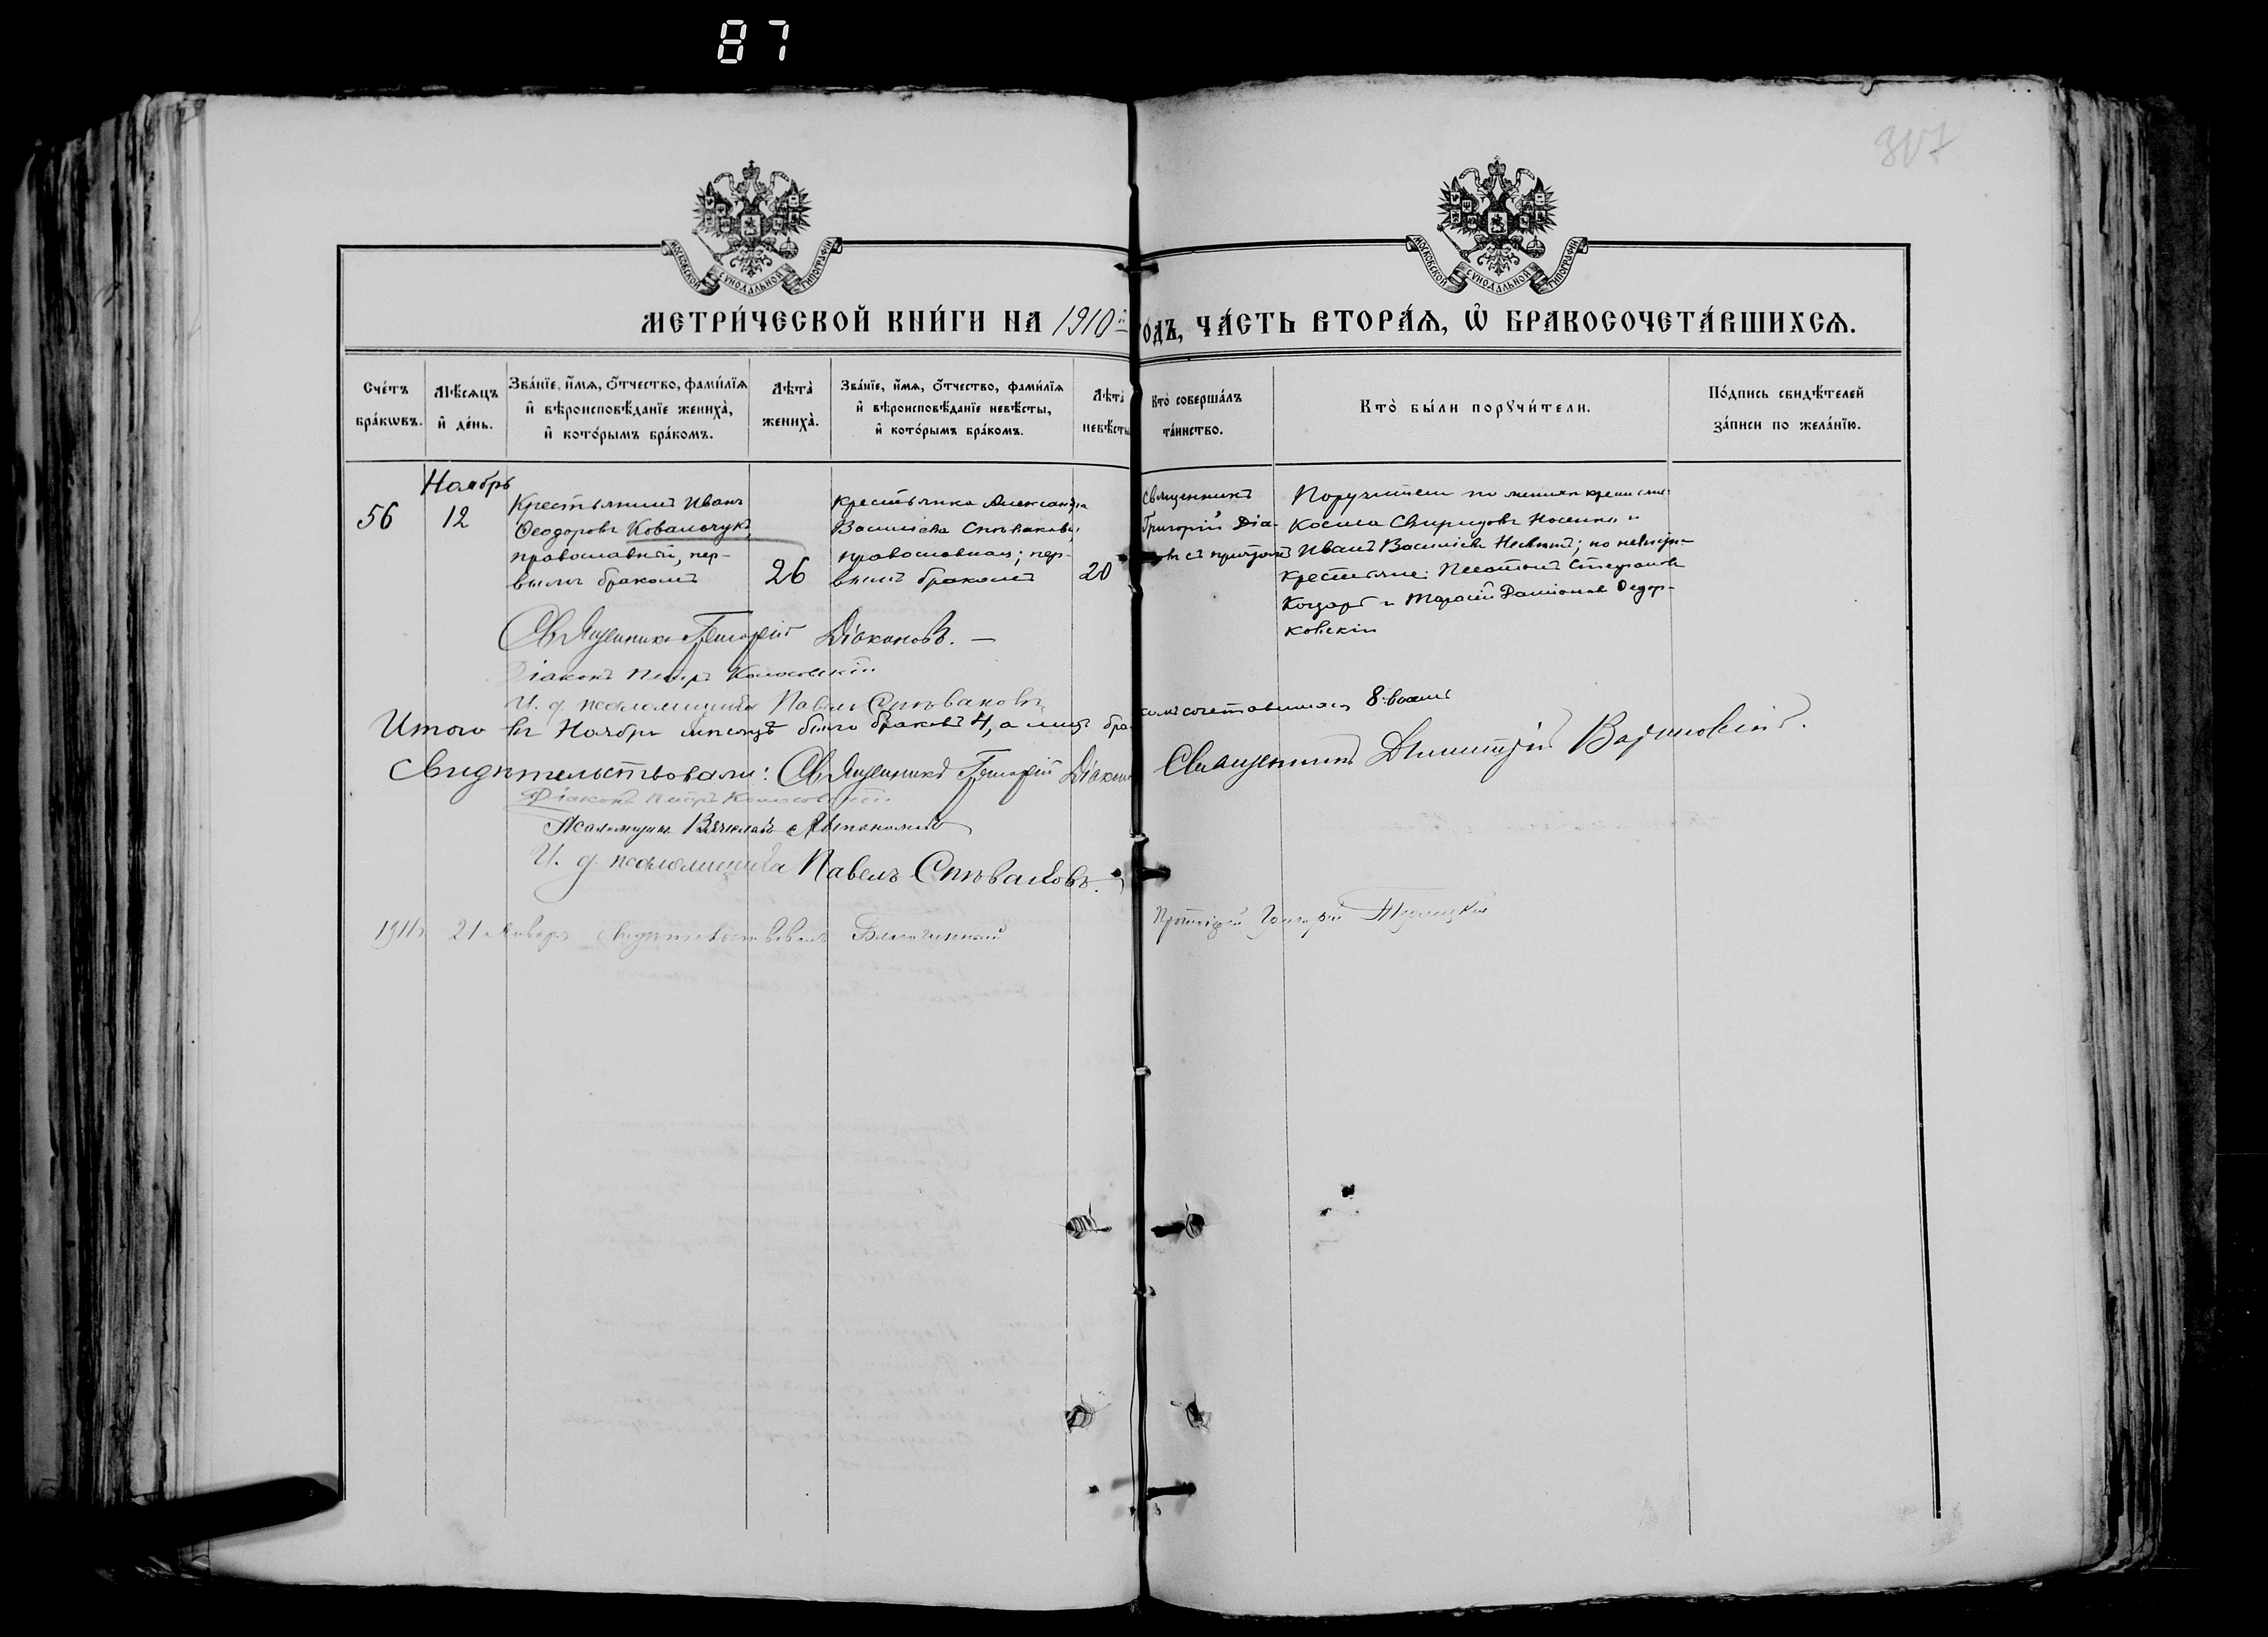 87
307
МОСКОВСКОЙ СѴНОДАЛЬНОЙ ТИПОГРАФІИ
МОСКОВСКОЙ СѴНОДАЛЬНОЙ ТИПОГРАФІИ
МЕТРИ́ЧЕСКОЙ КНИ́ГИ НА 1910й ГО́ДЪ, ЧА́СТЬ ВТОРА́Я, Ѡ҆ БРАКОСОЧЕТА́ВШИХСѦ.
Сче́тъ бра́кѡвъ.
Мѣ́сѧцъ и҆ де́нь.
Зва́нїе, и҆́мѧ, ѻ҆́тчество, фами́лїѧ и҆ вѣроисповѣ́данїе жениха̀, и҆ кото́рымъ бра́комъ.
Лѣта̀ жениха̀.
Зва́нїе, и҆́мѧ, ѻ҆́тчество, фами́лїѧ и҆ вѣроисповѣ́данїе невѣ́сты, и҆ кото́рымъ бра́комъ.
Лѣта̀ невѣ́сты
Кто̀ соверша́лъ та́инство.
Кто̀ бы́ли порꙋчи́тели.
По́дпись свидѣ́телей за́писи по жела́нїю.
56
Ноябрь
12
Крестьянинъ Иванъ
Ѳеодоровъ Ковальчукъ,
православный, пер-
вымъ бракомъ
26
Крестьянка Александра
Васильева Спѣвакова,
православная; пер-
вымъ бракомъ
20
Священникъ
Григорій Діа-
въ съ причтомъ
Поручители по женихѣ крестьяне:
Косьма Свиридовъ Носенко и
Иванъ Васильевъ; по невѣстѣ
крестьяне: Платонъ Стефановъ
Коцарь и Тарасій Даміановъ Ѳедор-
ковскій
Священникъ Григорій Діаконовъ. —
Діаконъ Петръ Колосовскій
И. д. псаломщика Павелъ Спѣваковъ
Итого въ Ноябрѣ мѣсяцѣ было браковъ 4, а лицъ бра-
комъ сочетавшихся 8-восемь
Свидѣтельствовали: Священникъ Григорій Діаконовъ
Священникъ Димитрій
Діаконъ Петръ Колосовскій
Псаломщикъ Вячеславъ
И. д. псаломщика Павелъ Спѣваковъ.
1911г. 21 Января свидѣтельствовалъ Благочинный
Протоіерей Григорій